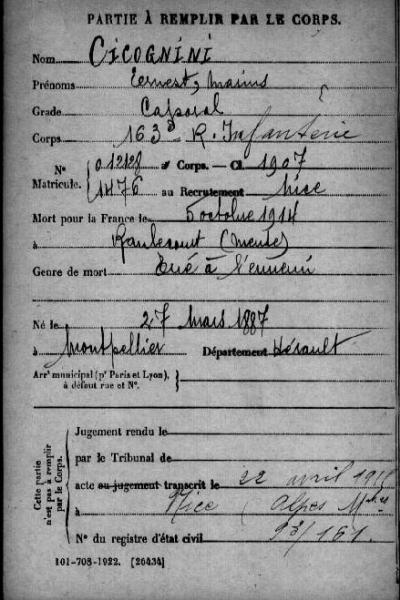 PARTIE À REMPLIR PAR LE CORPS.
Nom CICOGNINI
Prénoms Ernest, Marius
Grade Caporal
Corps 163e R. Infanterie
N° Matricule. { 01212 au Corps. — Cl. 1907
1476 au Recrutement Nice
Mort pour la France le 5 octobre 1914
à (Meuse)
Genre de mort Tué à l'ennemi
Né le 27 Mars 1887
à Montpellier Département Hérault
Arrt municipal (pr Paris et Lyon),
à défaut rue et N°.
Cette partie n'est pas à remplir par le Corps.
Jugement rendu le
par le Tribunal de
acte ou jugement transcrit le 22 avril
à Nice (Alpes Mmes
N° du registre d'état civil 93/161.
101-708-1922. [26434]